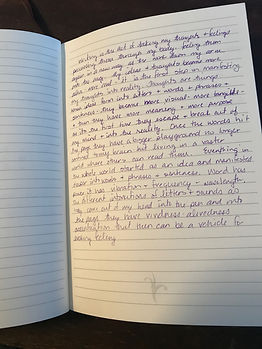 Writing is the act of taking my thoughts + feelings
processing them through my body, feeling them
again in a new way as they move down my arm
onto the page. My ideas + thoughts become more
"real". It is the first step in manifesting
my thoughts into reality. Thoughts are things.
When given form into letters + words + phrases +
sentences they become more visual - more tangible -
then they have more meaning + more purpose
as in the first time they escape + break out of
my mind + into the reality. Once the words hit
the page they have a bigger playground no longer
inside my brain but living in a vaster
world where others can read them. Everything in
the whole world started as an idea and manifested
into words + phrases + sentences. Word has
power it has vibration + frequency + wavelength,
the different vibrations of letters + sounds as
they come out of my head into the pen and into
the page they have vividness aliveness
that then can be a vehicle for
feeling